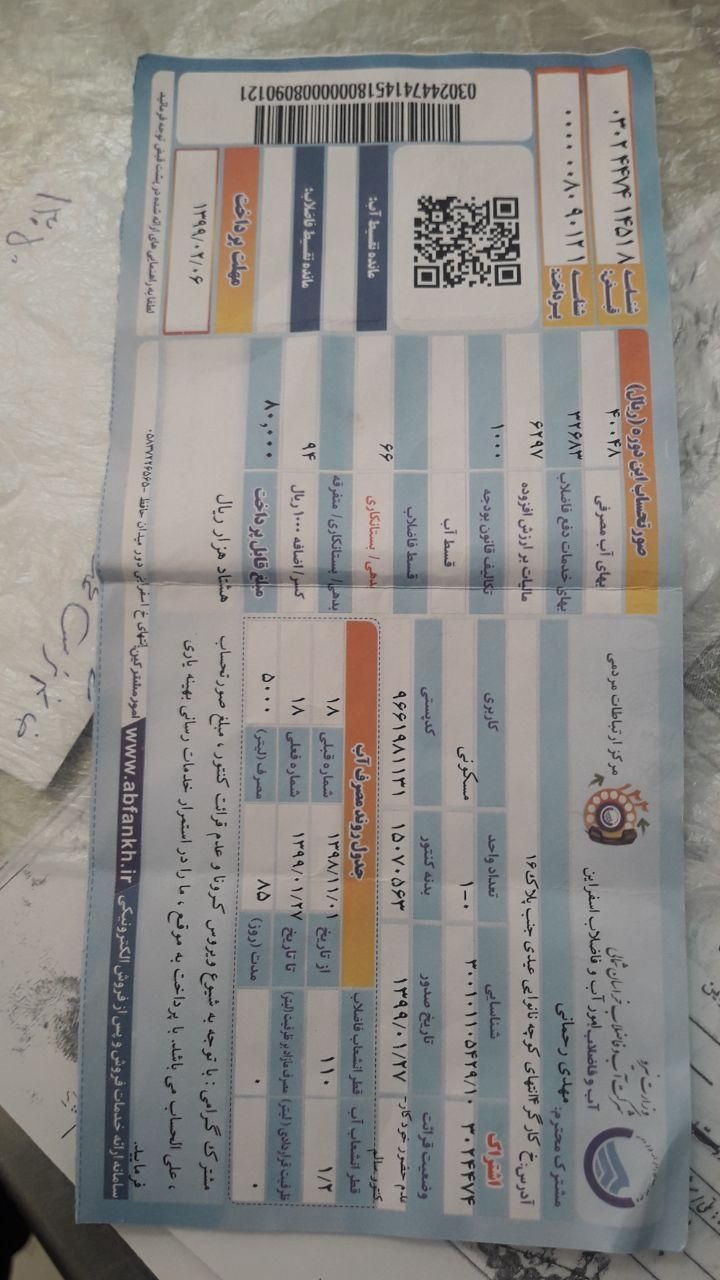 وزارت نیرو
شرکت آب و فاضلاب خراسان شمالی
آب و فاضلاب امور آب و فاضلاب اسفراین
مرکز ارتباطات مردمی
مشترک محترم: مهدی رحمانی
آدرس: خ کارگر ۴انتهای کوچه نانوایی عبدی جنب پلاک۱۶
اشتراک شناسایی تعداد واحد کاربری
۳۰۲۴۴۷۴ ۳۰۰۱۰۱۱۰۵۴۲۹/۱۰ ۱-۰ مسکونی
وضعیت قرائت تاریخ صدور بدنه کنتور کدپستی
عدم حضور خودکار- ۱۳۹۹/۰۱/۲۷ ۱۵۰۷۰۵۶۳ ۹۶۶۱۹۸۱۱۳۱
کنتور سالم
جدول روند مصرف آب
قطر انشعاب آب ۱/۲ قطر انشعاب فاضلاب ۱۱۰
از تاریخ ۱۳۹۸/۱۱/۰۱ شماره قبلی ۱۸
تا تاریخ ۱۳۹۹/۰۱/۲۷ شماره فعلی ۱۸
ظرفیت قراردادی (لیتر) ۰ مصرف مازاد بر ظرفیت (لیتر) ۰
مدت (روز) ۸۵ مصرف (لیتر) ۵۰۰۰
مشترک گرامی: با توجه به شیوع ویروس کرونا و عدم قرائت کنتور، مبلغ صورتحساب
، علی الحساب می باشد. با پرداخت به موقع، ما را در استمرار خدمات رسانی بهینه یاری
فرمایید.
سامانه ارائه خدمات فروش و پس از فروش الکترونیکی www.abfankh.ir
امور مشترکین: انتهای خ اسفراینی دور میدان حافظ -۰۵۸۳۷۲۲۶۵۶۵
صورتحساب این دوره (ریال)
بهای آب مصرفی ۴۰۰۴۸
بهای خدمات دفع فاضلاب ۳۲۶۸۳
مالیات بر ارزش افزوده ۶۲۹۷
تکالیف قانون بودجه ۱۰۰۰
قسط آب
قسط فاضلاب
بدهی/ بستانکاری ۶۶
بدهی/ بستانکاری/ متفرقه
کسر/اضافه ۱۰۰۰ ریال ۹۴
مبلغ قابل پرداخت ۸۰,۰۰۰
هشتاد هزار ریال
شناسه قبض: ۰۳۰۲۴۴۷۴ ۱۴۵۱۸
شناسه پرداخت: ۰۰۰۰۰۰۸۰ ۹۰۱۲۱
مانده تقسیط آب:
مانده تقسیط فاضلاب:
مهلت پرداخت
۱۳۹۹/۰۲/۰۶
03024474145180000008090121
لطفا به راهنمایی های ارائه شده در پشت قبض توجه فرمائید